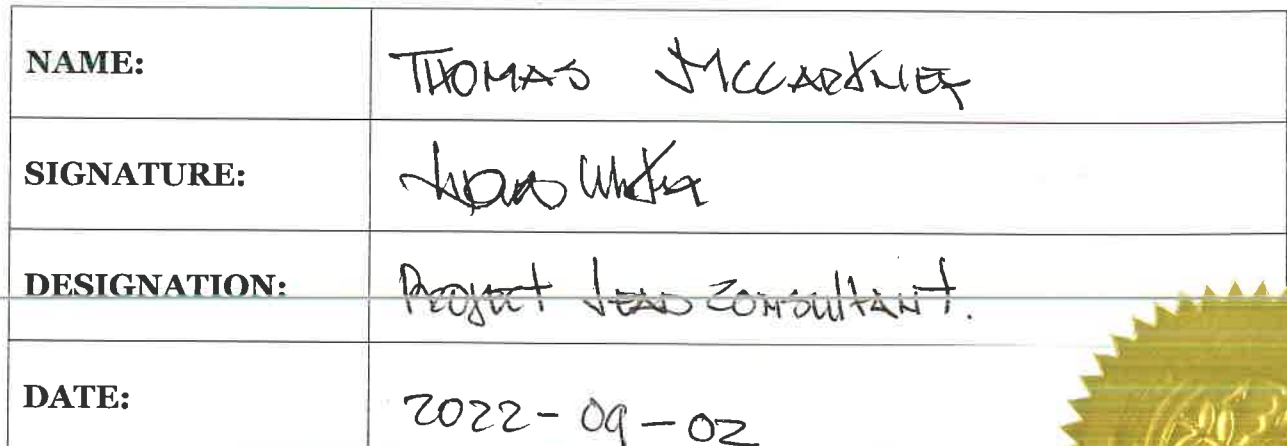 NAME: THOMAS MCCARTNEY
SIGNATURE:
DESIGNATION: PROJECT LEAD CONSULTANT.
DATE: 2022-09-02